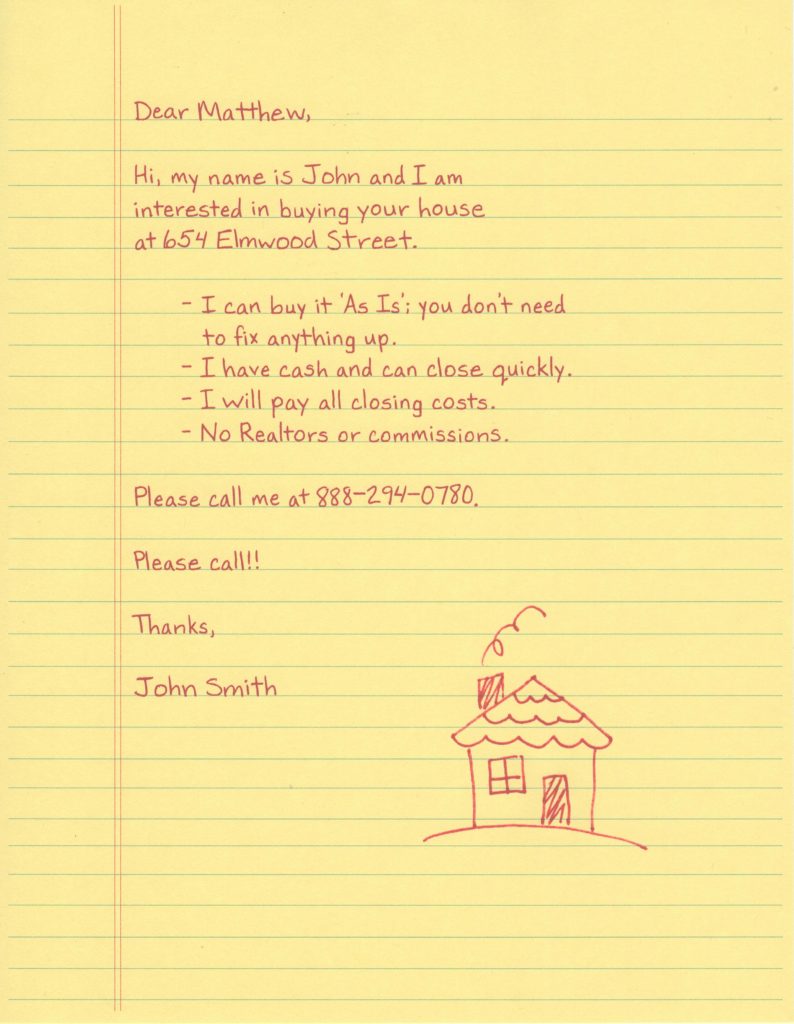 Dear Matthew,
Hi, my name is John and I am
interested in buying your house
at 654 Elmwood Street.
- I can buy it 'As Is'; you don't need
to fix anything up.
- I have cash and can close quickly.
- I will pay all closing costs.
- No Realtors or commissions.
Please call me at 888-294-0780.
Please call!!
Thanks,
John Smith